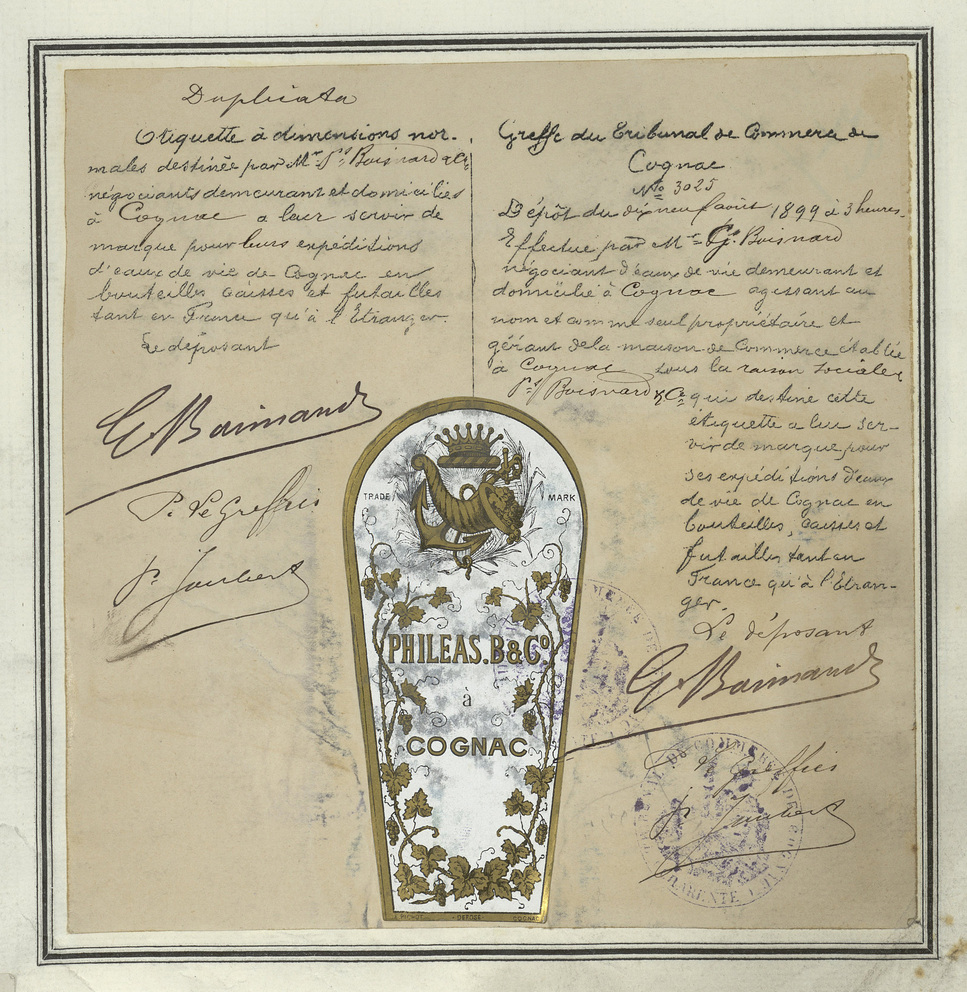 Duplicata
Etiquette à dimensions nor-
males destinée par Mr Ps Boisnard & Cie
négociants demeurant et domiciliés
à Cognac a leur servir de
marque pour leurs expéditions
d'eaux de vie de Cognac en
bouteilles caisses et futailles
tant en France qu'à l'Etranger.
Le déposant
G. Boisnard
P. Le Greffier
P. Joubert
Greffe du Tribunal de Commerce de
Cognac
No 3025
Dépôt du dix neuf août 1899 à 3 heures.
Effectué par Mr G. Boisnard
négociant d'eaux de vie demeurant et
domicilié à Cognac agissant au
nom et comme seul propriétaire et
gérant de la maison de Commerce établie
à Cognac sous la raison sociale
Ps Boisnard & Cie qui destine cette
étiquette a lui ser-
vir de marque pour
ses expéditions d'eaux
de vie de Cognac en
bouteilles, caisses et
futailles tant en
France qu'à l'Etran-
ger.
Le déposant
G. Boisnard
P. Le Greffier
P. Joubert
TRADE MARK
PHILEAS. B & Co
à
COGNAC
DÉPOSÉ
COGNAC